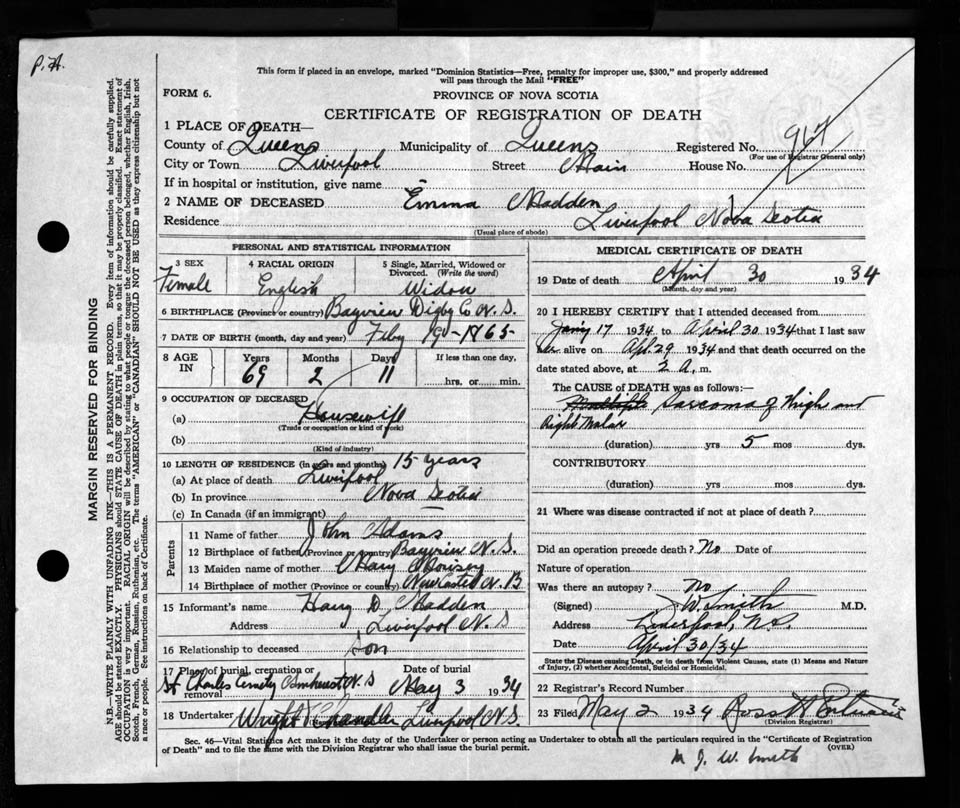 P.H.
This form if placed in an envelope, marked "Dominion Statistics—Free, penalty for improper use, $300," and properly addressed
will pass through the Mail "FREE"
FORM 6.
PROVINCE OF NOVA SCOTIA
CERTIFICATE OF REGISTRATION OF DEATH
1 PLACE OF DEATH—
County of Queens Municipality of Queens Registered No. 967
(For use of Registrar General only)
City or Town Liverpool Street Main House No.
If in hospital or institution, give name
2 NAME OF DECEASED Emma Madden
Residence Liverpool Nova Scotia
(Usual place of abode)
PERSONAL AND STATISTICAL INFORMATION
3 SEX Female
4 RACIAL ORIGIN English
5 Single, Married, Widowed or Divorced. (Write the word) Widow
6 BIRTHPLACE (Province or country) Bayview Digby Co N.S.
7 DATE OF BIRTH (month, day and year) Feby 19 - 1865-
8 AGE IN Years 69 Months 2 Days 11 If less than one day, hrs. or min.
9 OCCUPATION OF DECEASED
(a) Housewife
(Trade or occupation or kind of work)
(b)
(Kind of industry)
10 LENGTH OF RESIDENCE (in years and months) 15 years
(a) At place of death Liverpool
(b) In province Nova Scotia
(c) In Canada (if an immigrant)
Parents
11 Name of father John Adams
12 Birthplace of father (Province or country) Bayview N.S.
13 Maiden name of mother Mary
14 Birthplace of mother (Province or country) Newcastle N.B
15 Informant's name Harry D. Madden
Address Liverpool N.S
16 Relationship to deceased Son
17 Place of burial, cremation or removal St Charles Cemetry Amherst N.S
Date of burial May 3 1934
18 Undertaker Wright Chandler Liverpool N.S.
MEDICAL CERTIFICATE OF DEATH
19 Date of death April 30 1934
(Month, day and year)
20 I HEREBY CERTIFY that I attended deceased from
17 1934 to April 30 1934 that I last saw
her alive on Apl. 29 1934 and that death occurred on the
date stated above, at 2 a. m.
The CAUSE of DEATH was as follows:—
Multiple Sarcoma of thigh and
Right Malar
(duration) yrs 5 mos dys.
CONTRIBUTORY
(duration) yrs. mos. dys.
21 Where was disease contracted if not at place of death?
Did an operation precede death? No Date of
Nature of operation
Was there an autopsy? No
(Signed) J W Smith M.D.
Address Liverpool, N.S.
Date April 30/34
State the Disease causing Death, or in death from Violent Causes, state (1) Means and Nature
of Injury, (2) whether Accidental, Suicidal or Homicidal.
22 Registrar's Record Number
23 Filed May 2 1934 Ross H
(Division Registrar)
Sec. 46—Vital Statistics Act makes it the duty of the Undertaker or person acting as Undertaker to obtain all the particulars required in the "Certificate of Registration
of Death" and to file the same with the Division Registrar who shall issue the burial permit.
(OVER)
M J. W. Smith
MARGIN RESERVED FOR BINDING
N.B.—WRITE PLAINLY WITH UNFADING INK—THIS IS A PERMANENT RECORD. Every item of information should be carefully supplied.
AGE should be stated EXACTLY. PHYSICIANS should STATE CAUSE OF DEATH in plain terms, so that it may be properly classified. Exact statement of
OCCUPATION is very important. RACIAL ORIGIN will be described by stating to what people or tongue the deceased person belonged, whether English, Irish,
Scotch, French, German, Russian, Ruthenian, etc. The terms "AMERICAN" or "CANADIAN" SHOULD NOT BE USED as they express citizenship but not
a race or people. See instructions on back of Certificate.